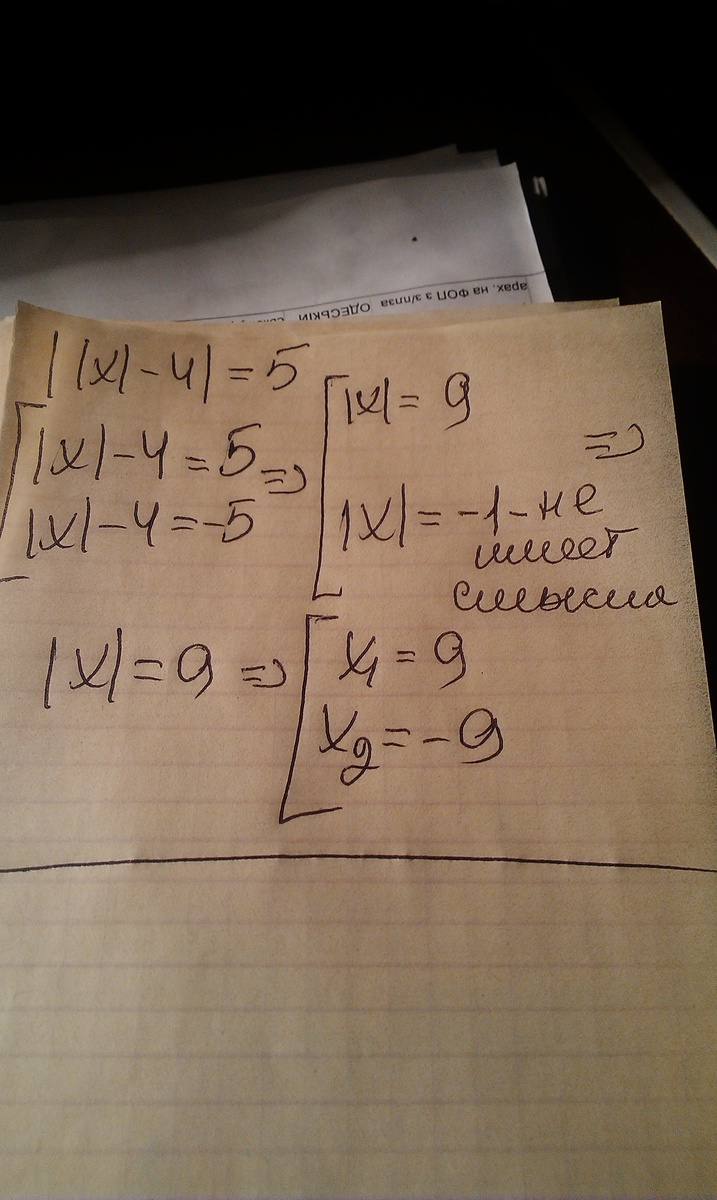 арах. на ФОП з з/плза ОДЕСЬКІЙ
| |x| - 4| = 5
|x| - 4 = 5 =>
|x| - 4 = -5
|x| = 9
=>
|x| = -1 - не
имеет
смысла
|x| = 9 =>
x₁ = 9
x₂ = -9